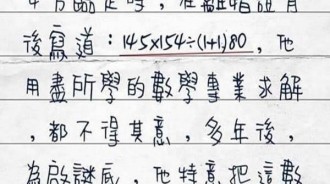 後寫道：145x154÷(1+1)80，他
用盡所學的數學專業求解
，都不得其意，多年後，
為啟謎底，他特意把這數